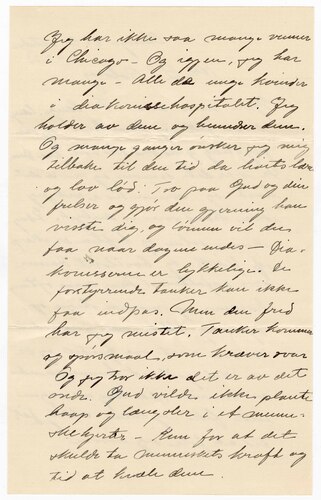 Jeg har ikke saa mange venner
i Chicago – Og igjen, jeg har
mange – Alle de unge kvinder
i diakonissehospitalet. Jeg
holder av dem og beundrer dem.
Og mange ganger ønsker jeg mig
tilbake til den tid da hans lære
og lov lød: Tro paa Gud og din
frelser og gjør den gjerning han
viste dig, og lønnen vil du
faa naar dagene endes – Dia-
konisserne er lykkelige. De
forstyrrende tanker kan ikke
faa indpas. Men den fred
har jeg mistet. Tanker kommer
og spørsmaal, som kræver svar
Og jeg tror ikke det er av det
onde. Gud vilde ikke plante
haap og længsler i et menne-
skehjerte – Kun for at det
skulde ta menneskets kraft og
tid at kvæle dem.